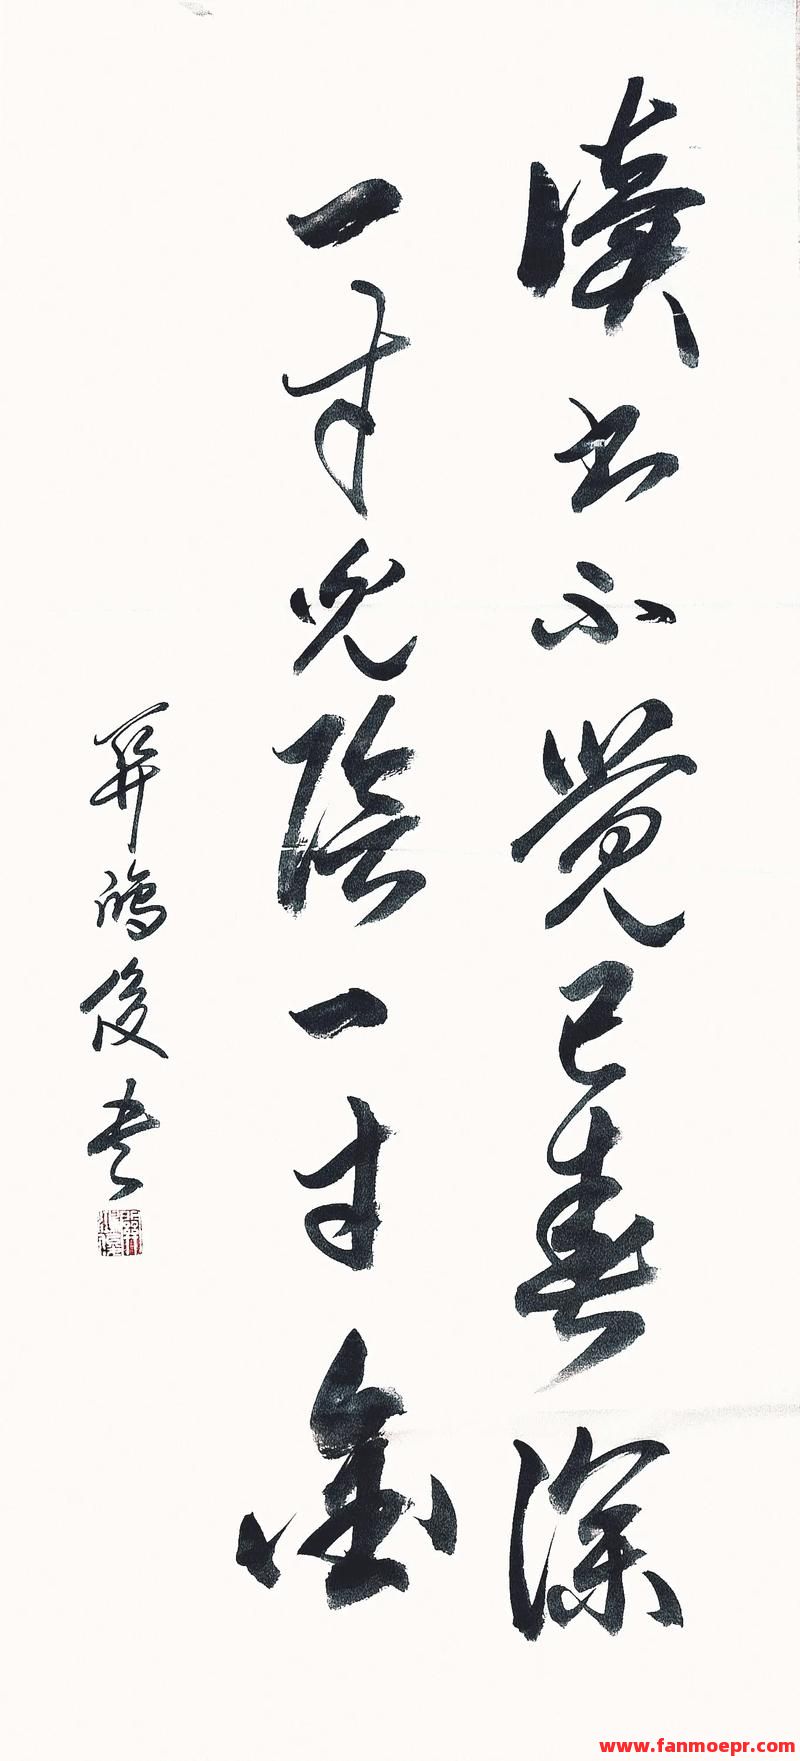 讀書不覺已春深
一寸光陰一寸金
鴻俊書
www.fanmoepr.com